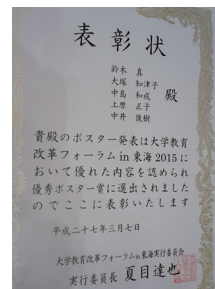 表彰状
鈴木 真
大塚 知津子
中島 和成 殿
上原 正子
中井 俊樹
貴殿のポスター発表は大学教育
改革フォーラムin東海2015に
おいて優れた内容を認められ
優秀ポスター賞に選出されました
のでここに表彰いたします
平成二十七年三月七日
大学教育改革フォーラムin東海実行委員会
実行委員長 夏目達也